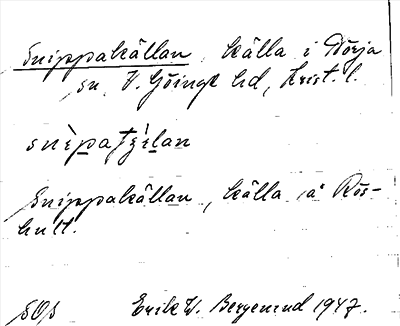 Snippakällan, källa i Dörja
sn, V. Göinge hd, Krist. l.
Snippakällan, källa å Rös-
hult.
SOs Erik W. Bergenrud 1947.